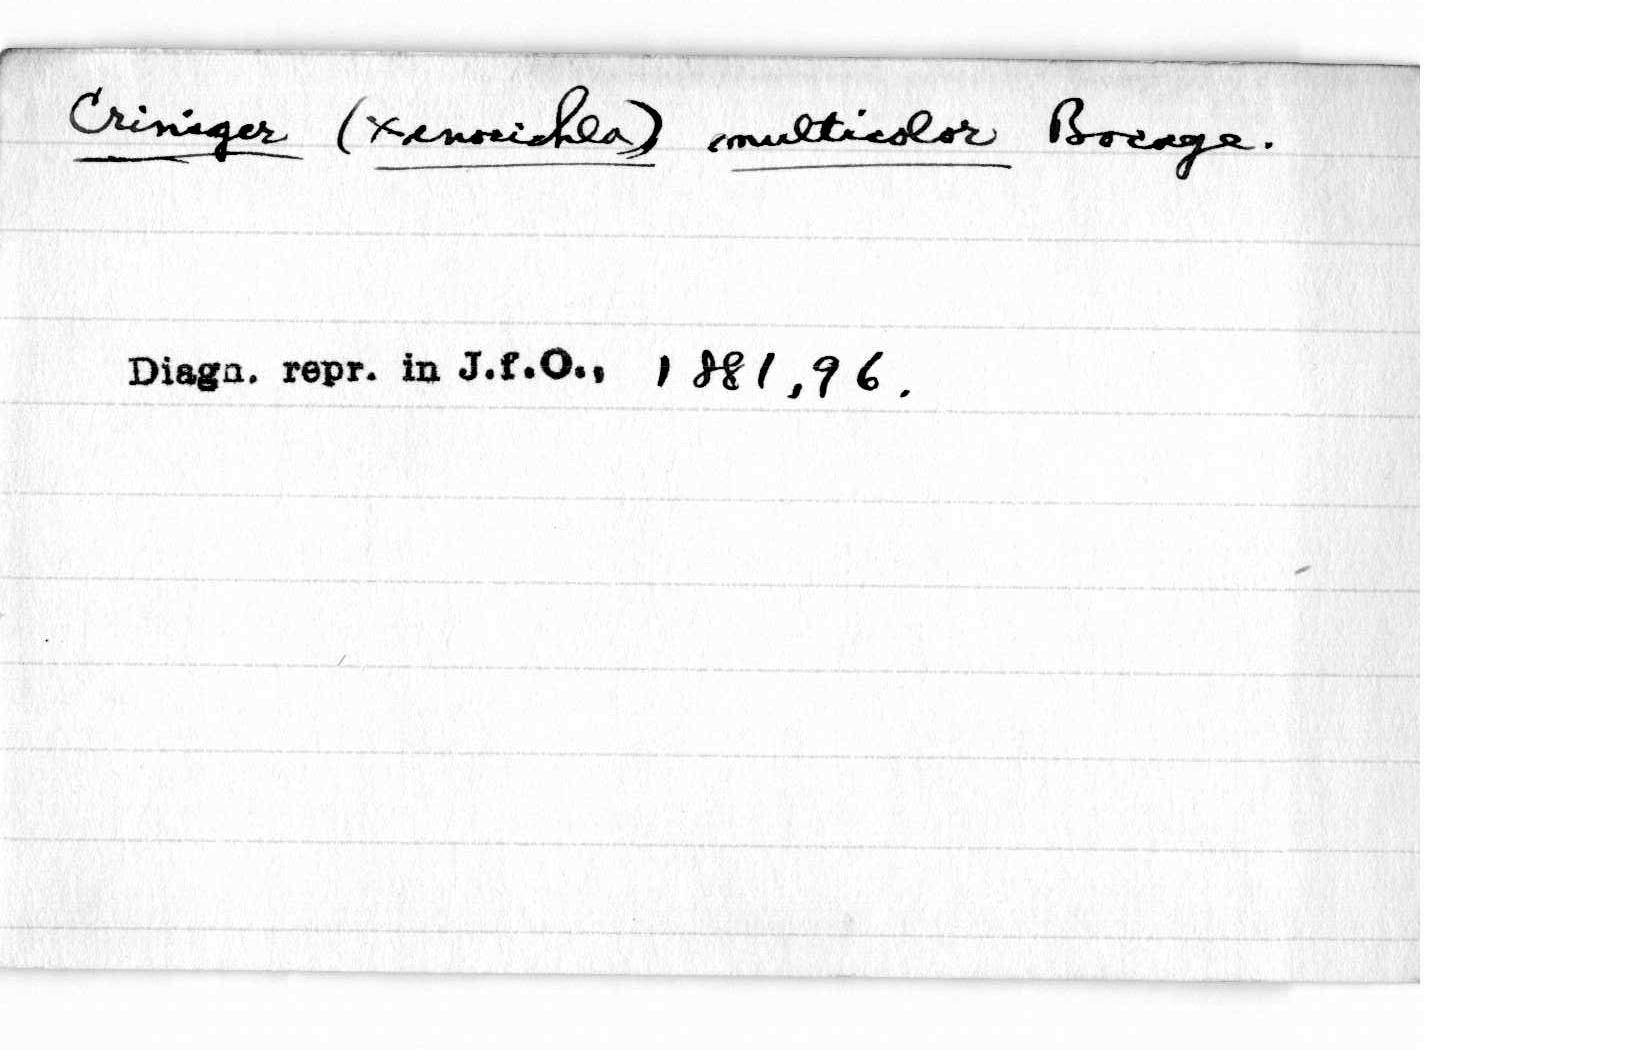 Criniger (Xenocichla) multicolor Bocage.
Diagn. repr. in J.f.O., 1881,96.